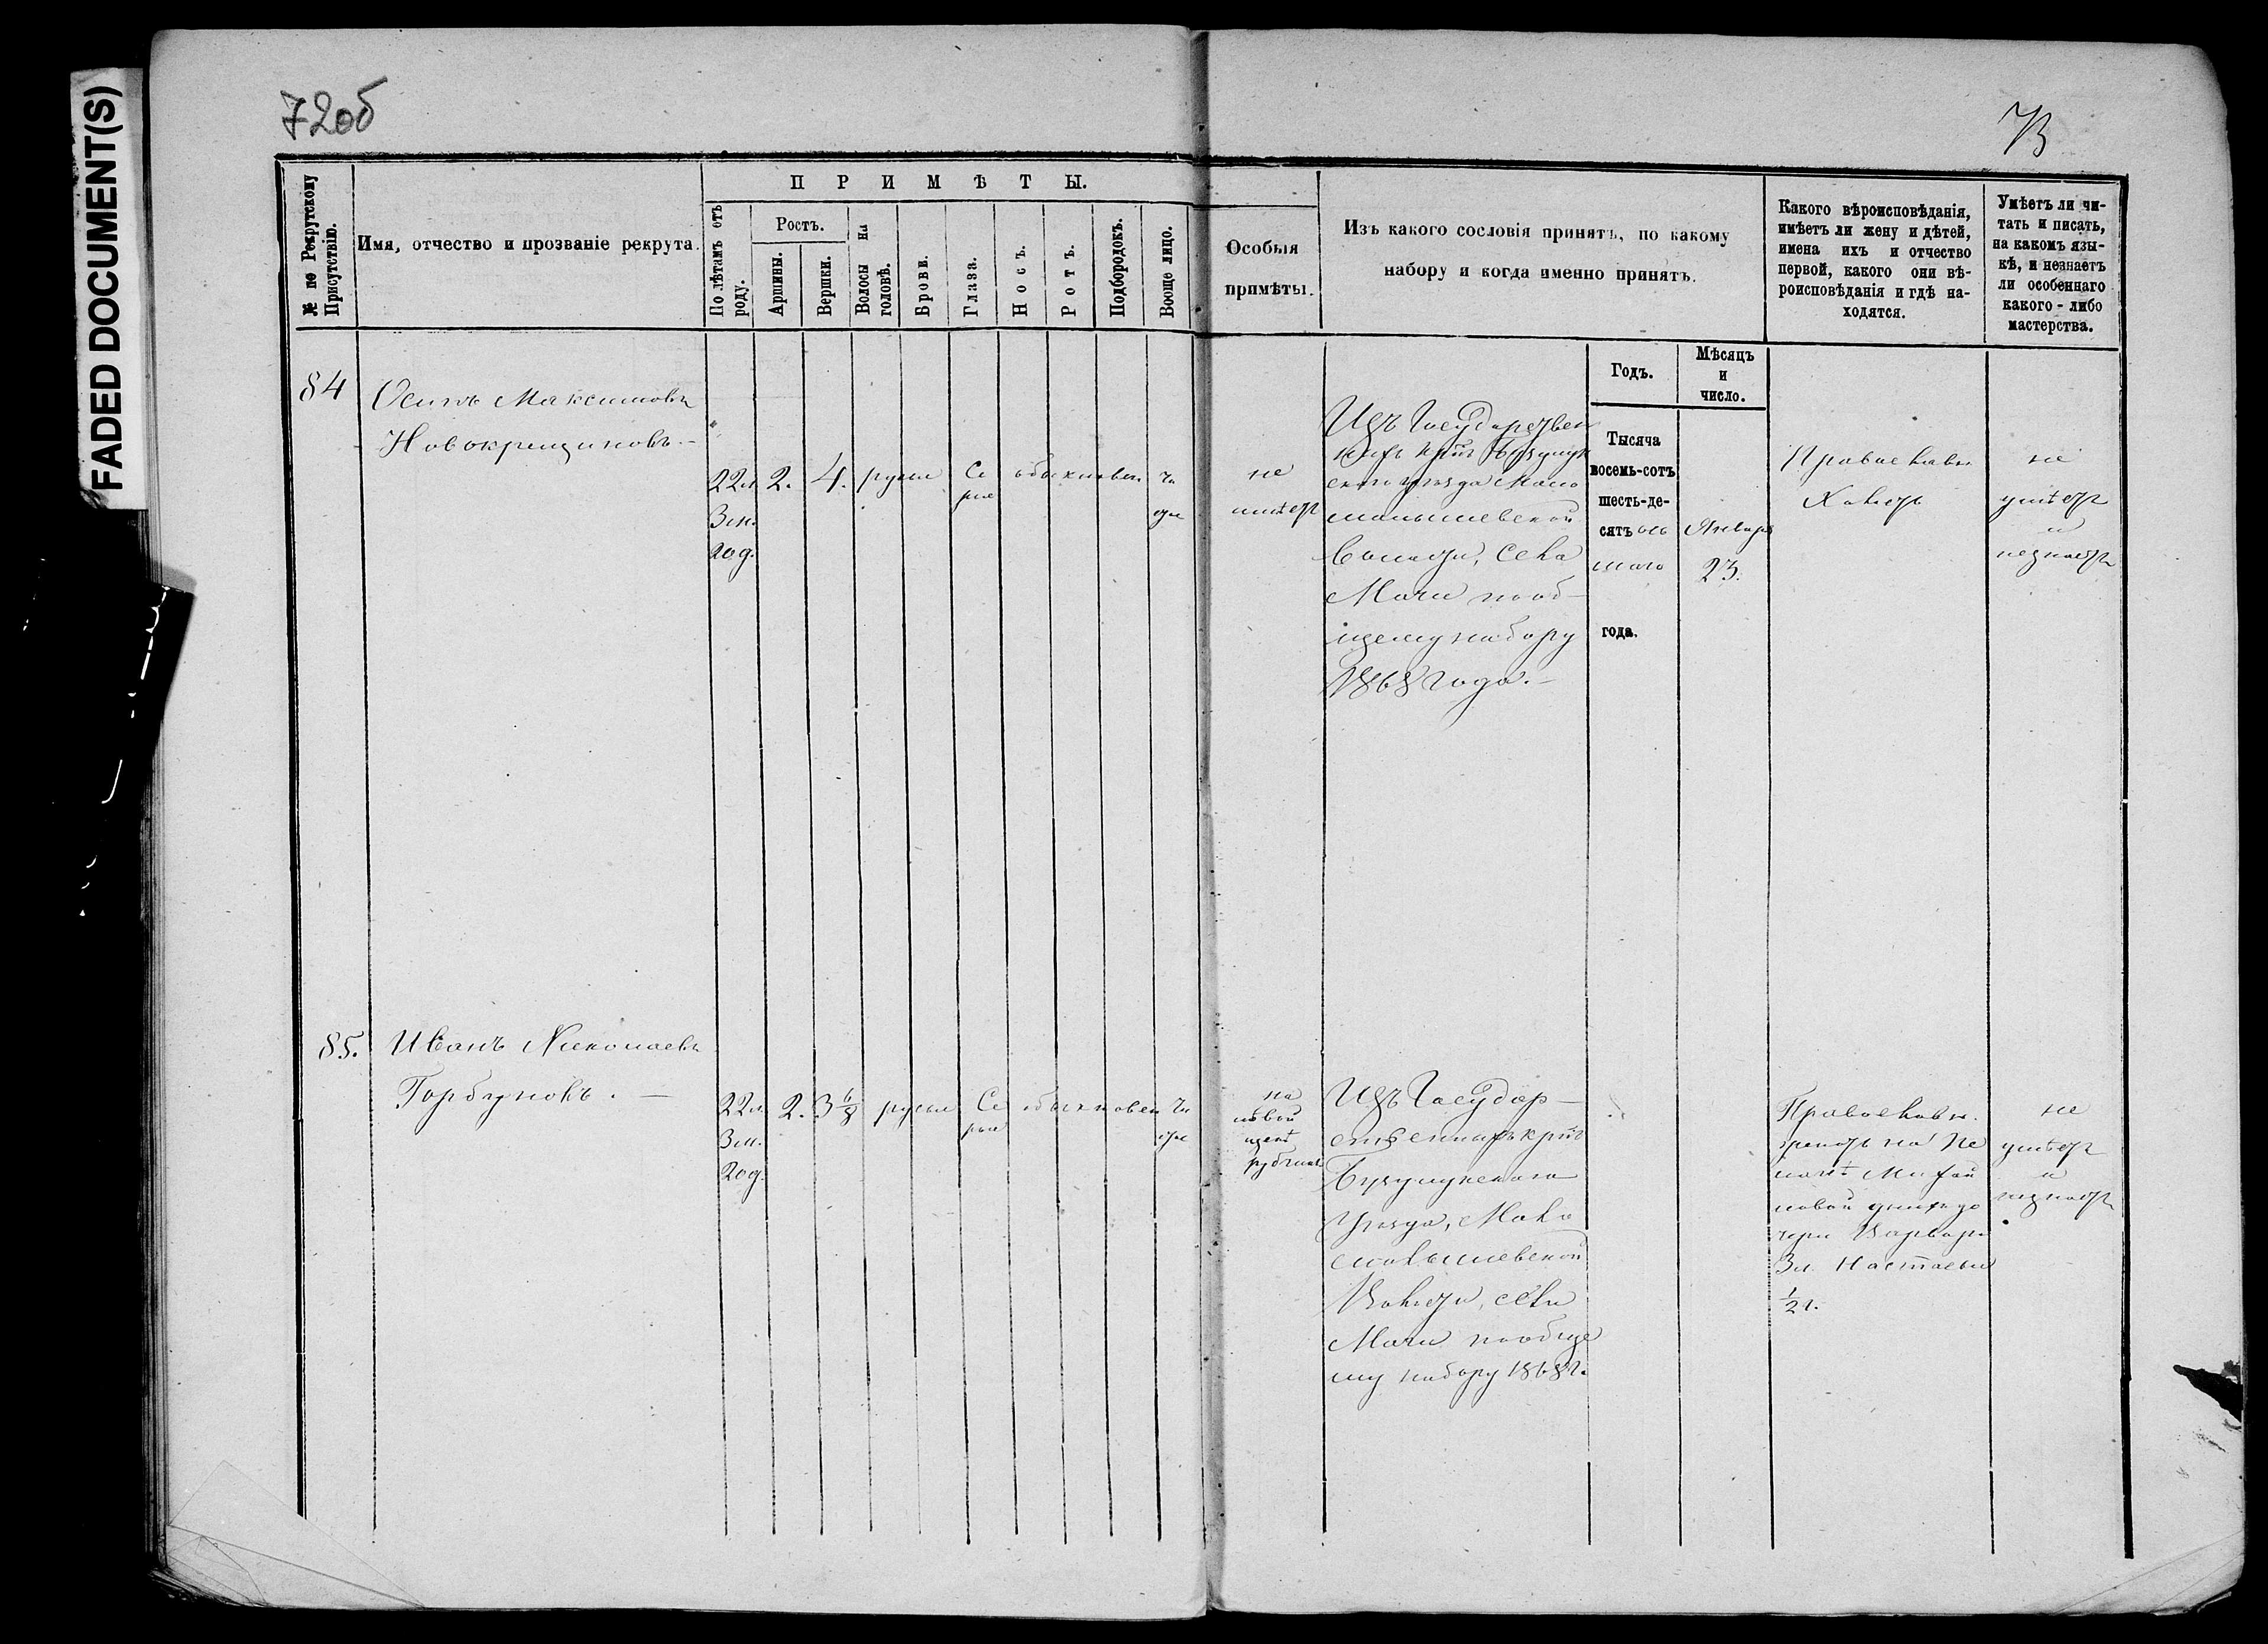 FADED DOCUMENT(S)
72об
73
№ по Рекрутскому
Присутствію.
Имя, отчество и прозваніе рекрута.
ПРИМѢТЫ.
По лѣтамъ отъ
роду.
Ростъ.
Аршины.
Вершки.
Волосы на
головѣ.
Брови.
Глаза.
Носъ.
Ротъ.
Подбородокъ.
Вообще лицо.
Особыя
примѣты.
Изъ какого сословія принятъ, по какому
набору и когда именно принятъ.
Какого вѣроисповѣданія,
имѣетъ ли жену и дѣтей,
имена ихъ и отчество
первой, какого они вѣ-
роисповѣданія и гдѣ на-
ходятся.
Умѣетъ ли чи-
тать и писать,
на какомъ язы-
кѣ, и незнаетъ
ли особеннаго
какого-либо
мастерства.
Годъ.
Мѣсяцъ
и
число.
84
Осипъ Максимовъ
Новокрещиновъ.—
22л.
3м.
20д.
2.
4.
русы
Се
рые
обыкновен
чи
стое
не
имѣетъ
Изъ Государствен
ныхъ кр. Бузулук
скаго уѣзда Мало
малышевской
Волости, Села
Мачи пооб-
щему набору
1868 года.—
Тысяча
восемь-сотъ
шесть-де-
сятъ ось
маго
года.
Января
23.
Православн.
Холостъ
не
умѣетъ
и
незнаетъ
85.
Иванъ Николаевъ
Горбуновъ.—
22л.
3м.
20д.
2.
3 6/8
русы
Се
рые
обыкновен
чи
стое
на
лѣвой
щекѣ
Изъ Государ-
ственныхъ кр.
Бузулукскаго
Уѣзда, Мало
малышевской
Волости, села
Мачи пообще
му набору 1868г.
Православн.
женатъ на Пе
лагѣ
новой
чери Варвара
3л. Настасья
1/2 г.
не
умѣетъ
и
незнаетъ